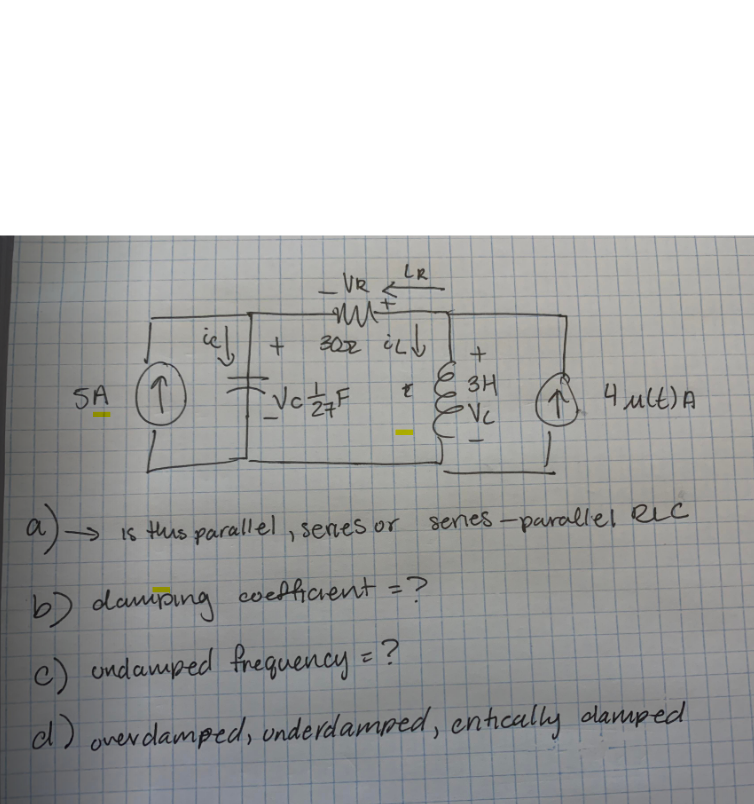 − VR + ← iR
ic ↓ + 30Ω iL ↓ +
5A ↑ − Vc 1/27 F 3H ↑ 4 u(t) A
VL
−
a) → is this parallel, series or series-parallel RLC
b) damping coefficient = ?
c) undamped frequency = ?
d) overdamped, underdamped, critically damped